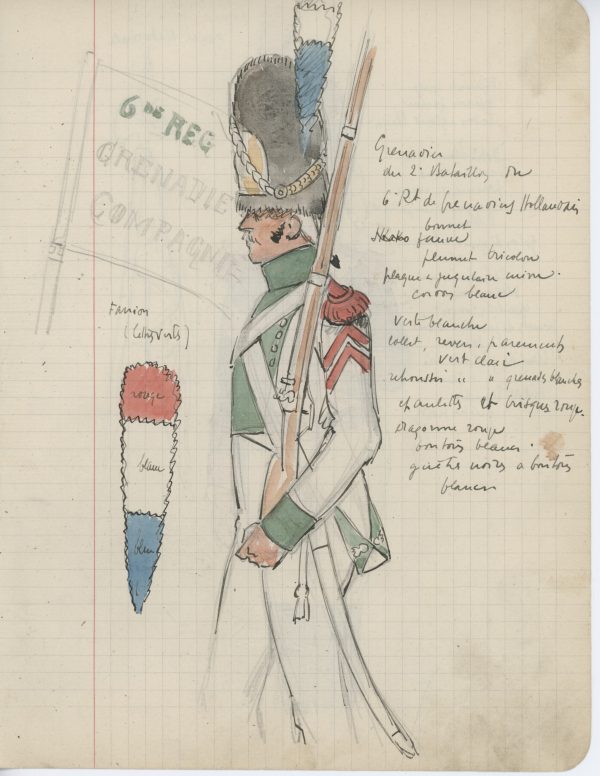 6me REG
GRENADIE
COMPAGNIE
Grenadier
du 2e Bataillon du
6e Rt de Grenadiers Hollandais
bonnet
plumet tricolore
plaque a jugulaire cuivre.
cordon blanc
veste blanche
collet, revers, parements
vert clair
retroussis " " grenades blanches
epaulettes et brisques rouge.
dragonne rouge
boutons blancs.
guetres noires a boutons
blancs
Fanion
(lettres vertes)
rouge
blanc
bleu